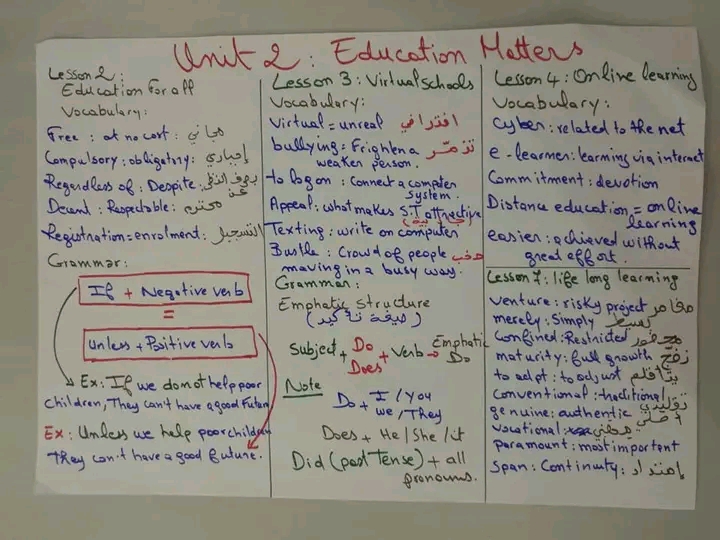 Unit 2 : Education Matters
Lesson 2 :
Education For all
Vocabulary :
Free : at no cost : مجاني
Compulsory : obligatory : إجباري
Regardless of : Despite : بصرف النظر عن
Decent : Respectable : محترم
Registration = enrolment : التسجيل
Grammar :
If + Negative verb
=
Unless + Positive verb
Ex : If we do not help poor
children, They can't have a good Future
Ex : Unless we help poor children
They can't have a good future.
Lesson 3 : Virtual schools
Vocabulary :
Virtual = unreal افتراضي
bullying = Frighten a تنمّر
weaker person.
to log on : Connect a computer
system.
Appeal : what makes S.T attractive
Texting : write on computer
Bustle : Crowd of people صخب
moving in a busy way.
Grammar :
Emphatic Structure
(صيغة تأكيد)
Subject + Do Does + Verb → Emphatic Do
Note
Do + I / You
we / They
Does + He / She / it
Did (past Tense) + all
pronouns.
Lesson 4 : Online learning
Vocabulary :
Cyber : related to the net
e-learner : learning via internet
Commitment : devotion
Distance education = online
learning
easier : achieved without
great effort.
Lesson 7 : life long learning
venture : risky project مغامرة
merely : Simply بسيط
confined : Restricted محصور
maturity : full growth نضج
to adpt : to adjust يتأقلم
conventional : traditional تقليدي
genuine : authentic أصلي
vocational : مهني
paramount : most important
span : Continuity : إمتداد